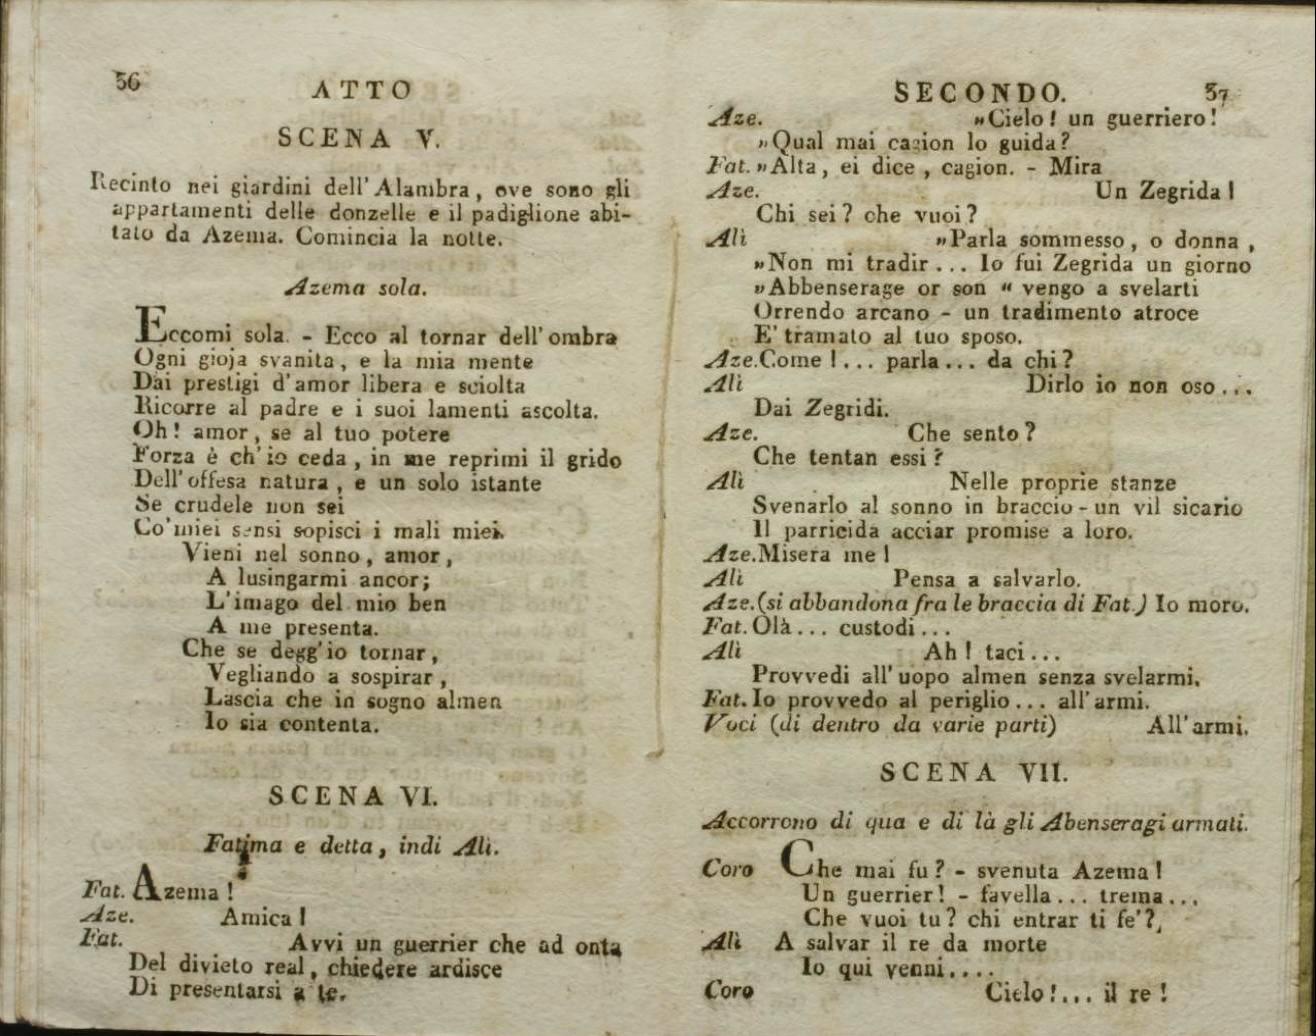 56
ATTO
SCENA V.
Recinto nei giardini dell'Alambra, ove sono gli
appartamenti delle donzelle e il padiglione abi-
tato da Azema. Comincia la notte.
Azema sola.
Eccomi sola. - Ecco al tornar dell'ombra
Ogni gioja svanita, e la mia mente
Dai prestigi d'amor libera e sciolta
Ricorre al padre e i suoi lamenti ascolta.
Oh! amor, se al tuo potere
Forza è ch'io ceda, in me reprimi il grido
Dell'offesa natura, e un solo istante
Se crudele non sei
Co'miei sensi sopisci i mali miei.
Vieni nel sonno, amor,
A lusingarmi ancor;
L'imago del mio ben
A me presenta.
Che se degg'io tornar,
Vegliando a sospirar,
Lascia che in sogno almen
Io sia contenta.
SCENA VI.
Fatima e detta, indi Alì.
Fat. Azema!
Aze. Amica!
Fat. Avvi un guerrier che ad onta
Del divieto real, chiedere ardisce
Di presentarsi a te.
SECONDO. 57
Aze. »Cielo! un guerriero!
»Qual mai cagion lo guida?
Fat. »Alta, ei dice, cagion. - Mira
Aze. Un Zegrida!
Chi sei? che vuoi?
Alì »Parla sommesso, o donna,
»Non mi tradir... Io fui Zegrida un giorno
»Abbenserage or son “ vengo a svelarti
Orrendo arcano - un tradimento atroce
E' tramato al tuo sposo.
Aze. Come!... parla... da chi?
Alì Dirlo io non oso...
Dai Zegridi.
Aze. Che sento?
Che tentan essi?
Alì Nelle proprie stanze
Svenarlo al sonno in braccio - un vil sicario
Il parricida acciar promise a loro.
Aze. Misera me!
Alì Pensa a salvarlo.
Aze. (si abbandona fra le braccia di Fat.) Io moro.
Fat. Olà... custodi...
Alì Ah! taci...
Provvedi all'uopo almen senza svelarmi.
Fat. Io provvedo al periglio... all'armi.
Voci (di dentro da varie parti) All'armi.
SCENA VII.
Accorrono di qua e di là gli Abenseragi armati.
Coro Che mai fu? - svenuta Azema!
Un guerrier! - favella... trema...
Che vuoi tu? chi entrar ti fe'?
Alì A salvar il re da morte
Io qui venni....
Coro Cielo!... il re!